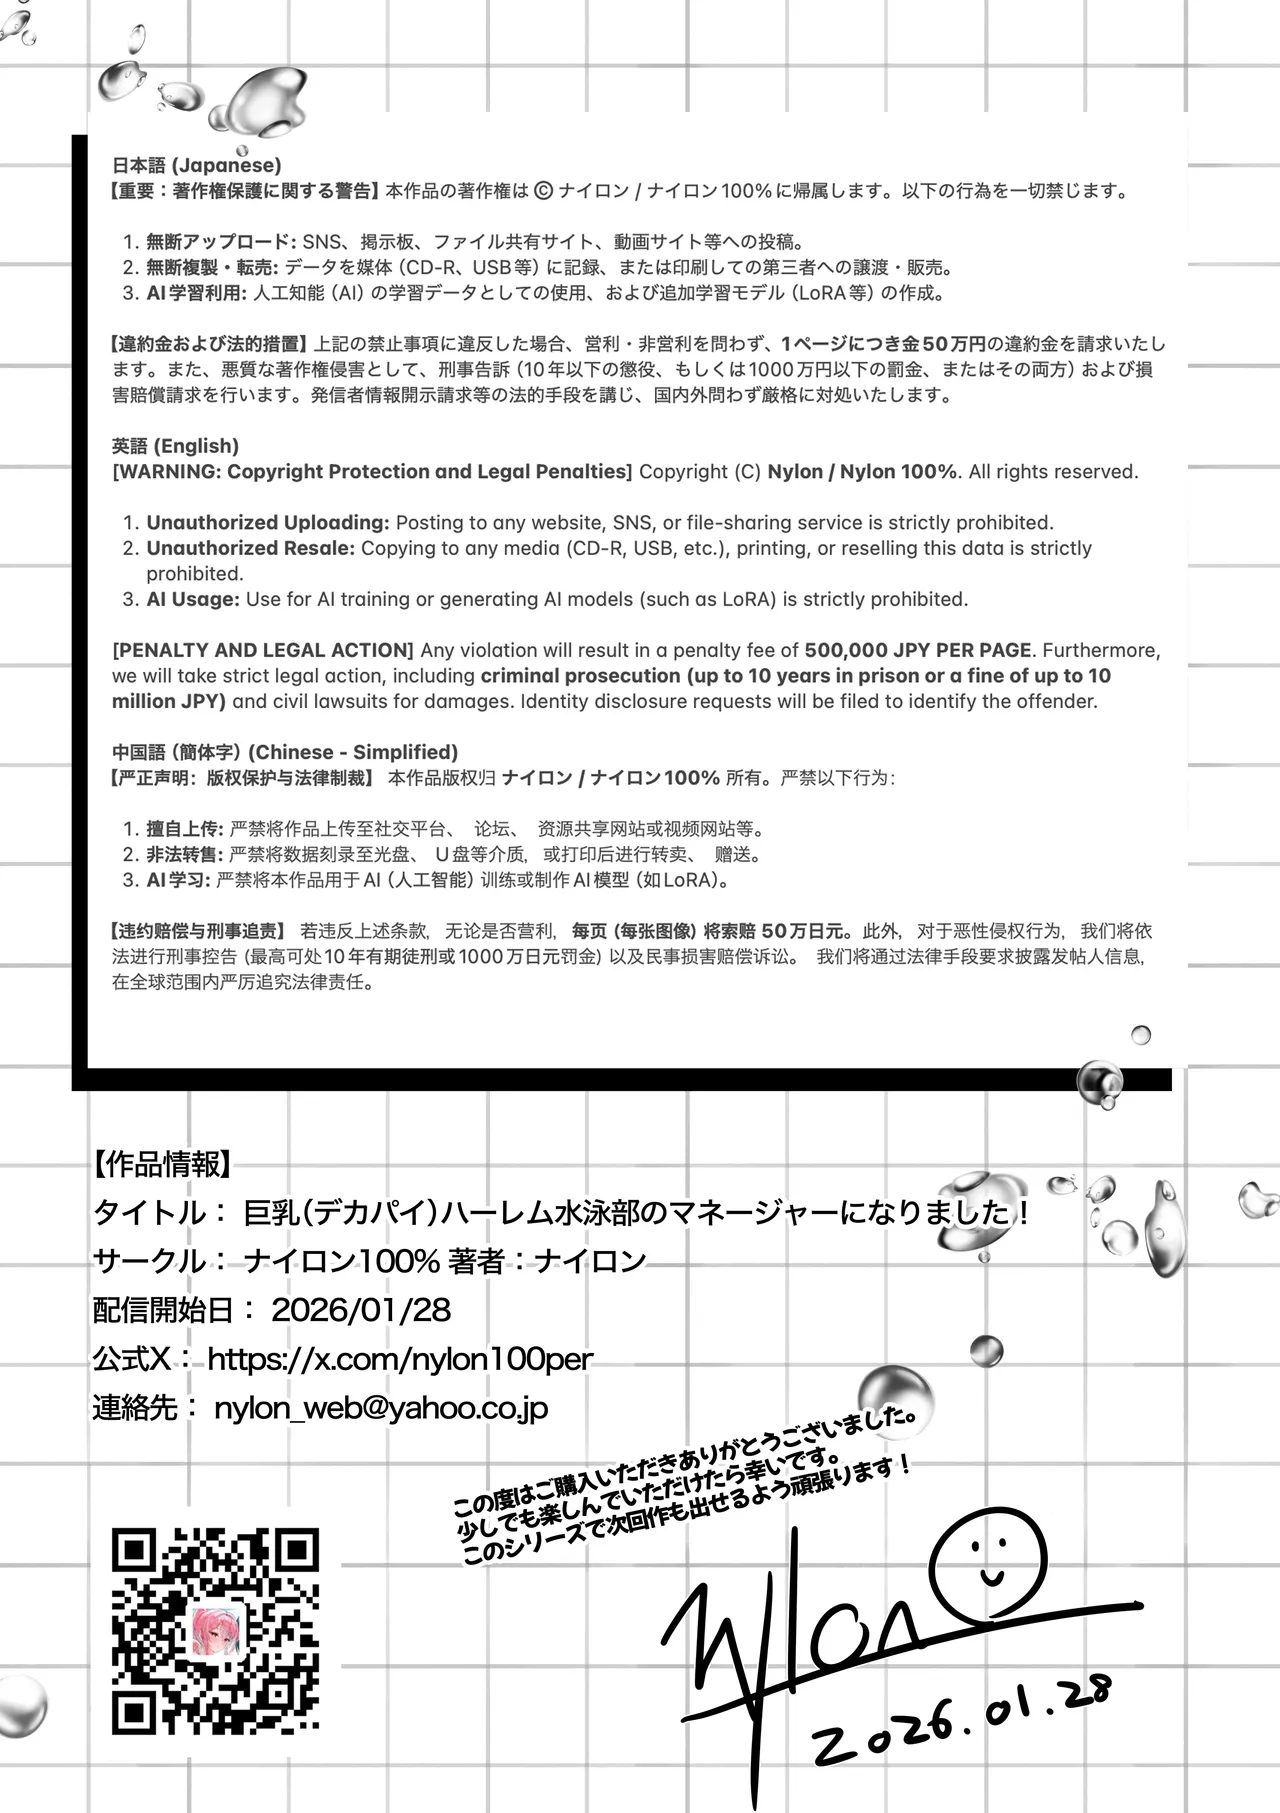 日本語 (Japanese)
【重要：著作権保護に関する警告】本作品の著作権は © ナイロン / ナイロン100%に帰属します。以下の行為を一切禁じます。
1. 無断アップロード: SNS、掲示板、ファイル共有サイト、動画サイト等への投稿。
2. 無断複製・転売: データを媒体（CD-R、USB等）に記録、または印刷しての第三者への譲渡・販売。
3. AI学習利用: 人工知能（AI）の学習データとしての使用、および追加学習モデル（LoRA等）の作成。
【違約金および法的措置】上記の禁止事項に違反した場合、営利・非営利を問わず、1ページにつき金50万円の違約金を請求いたし
ます。また、悪質な著作権侵害として、刑事告訴（10年以下の懲役、もしくは1000万円以下の罰金、またはその両方）および損
害賠償請求を行います。発信者情報開示請求等の法的手段を講じ、国内外問わず厳格に対処いたします。
英語 (English)
[WARNING: Copyright Protection and Legal Penalties] Copyright (C) Nylon / Nylon 100%. All rights reserved.
1. Unauthorized Uploading: Posting to any website, SNS, or file-sharing service is strictly prohibited.
2. Unauthorized Resale: Copying to any media (CD-R, USB, etc.), printing, or reselling this data is strictly
prohibited.
3. AI Usage: Use for AI training or generating AI models (such as LoRA) is strictly prohibited.
[PENALTY AND LEGAL ACTION] Any violation will result in a penalty fee of 500,000 JPY PER PAGE. Furthermore,
we will take strict legal action, including criminal prosecution (up to 10 years in prison or a fine of up to 10
million JPY) and civil lawsuits for damages. Identity disclosure requests will be filed to identify the offender.
中国語（簡体字）(Chinese - Simplified)
【严正声明：版权保护与法律制裁】 本作品版权归 ナイロン / ナイロン100% 所有。严禁以下行为：
1. 擅自上传: 严禁将作品上传至社交平台、 论坛、 资源共享网站或视频网站等。
2. 非法转售: 严禁将数据刻录至光盘、 U盘等介质，或打印后进行转卖、 赠送。
3. AI学习: 严禁将本作品用于AI（人工智能）训练或制作AI模型（如LoRA）。
【违约赔偿与刑事追责】 若违反上述条款，无论是否营利，每页（每张图像）将索赔 50万日元。此外，对于恶性侵权行为，我们将依
法进行刑事控告 (最高可处10年有期徒刑或1000万日元罚金) 以及民事损害赔偿诉讼。 我们将通过法律手段要求披露发帖人信息，
在全球范围内严厉追究法律责任。
【作品情報】
タイトル： 巨乳(デカパイ)ハーレム水泳部のマネージャーになりました！
サークル： ナイロン100% 著者：ナイロン
配信開始日： 2026/01/28
公式X： https://x.com/nylon100per
連絡先： nylon_web@yahoo.co.jp
この度はご購入いただきありがとうございました。
少しでも楽しんでいただけたら幸いです。
このシリーズで次回作も出せるよう頑張ります！
Nylon
2026.01.28